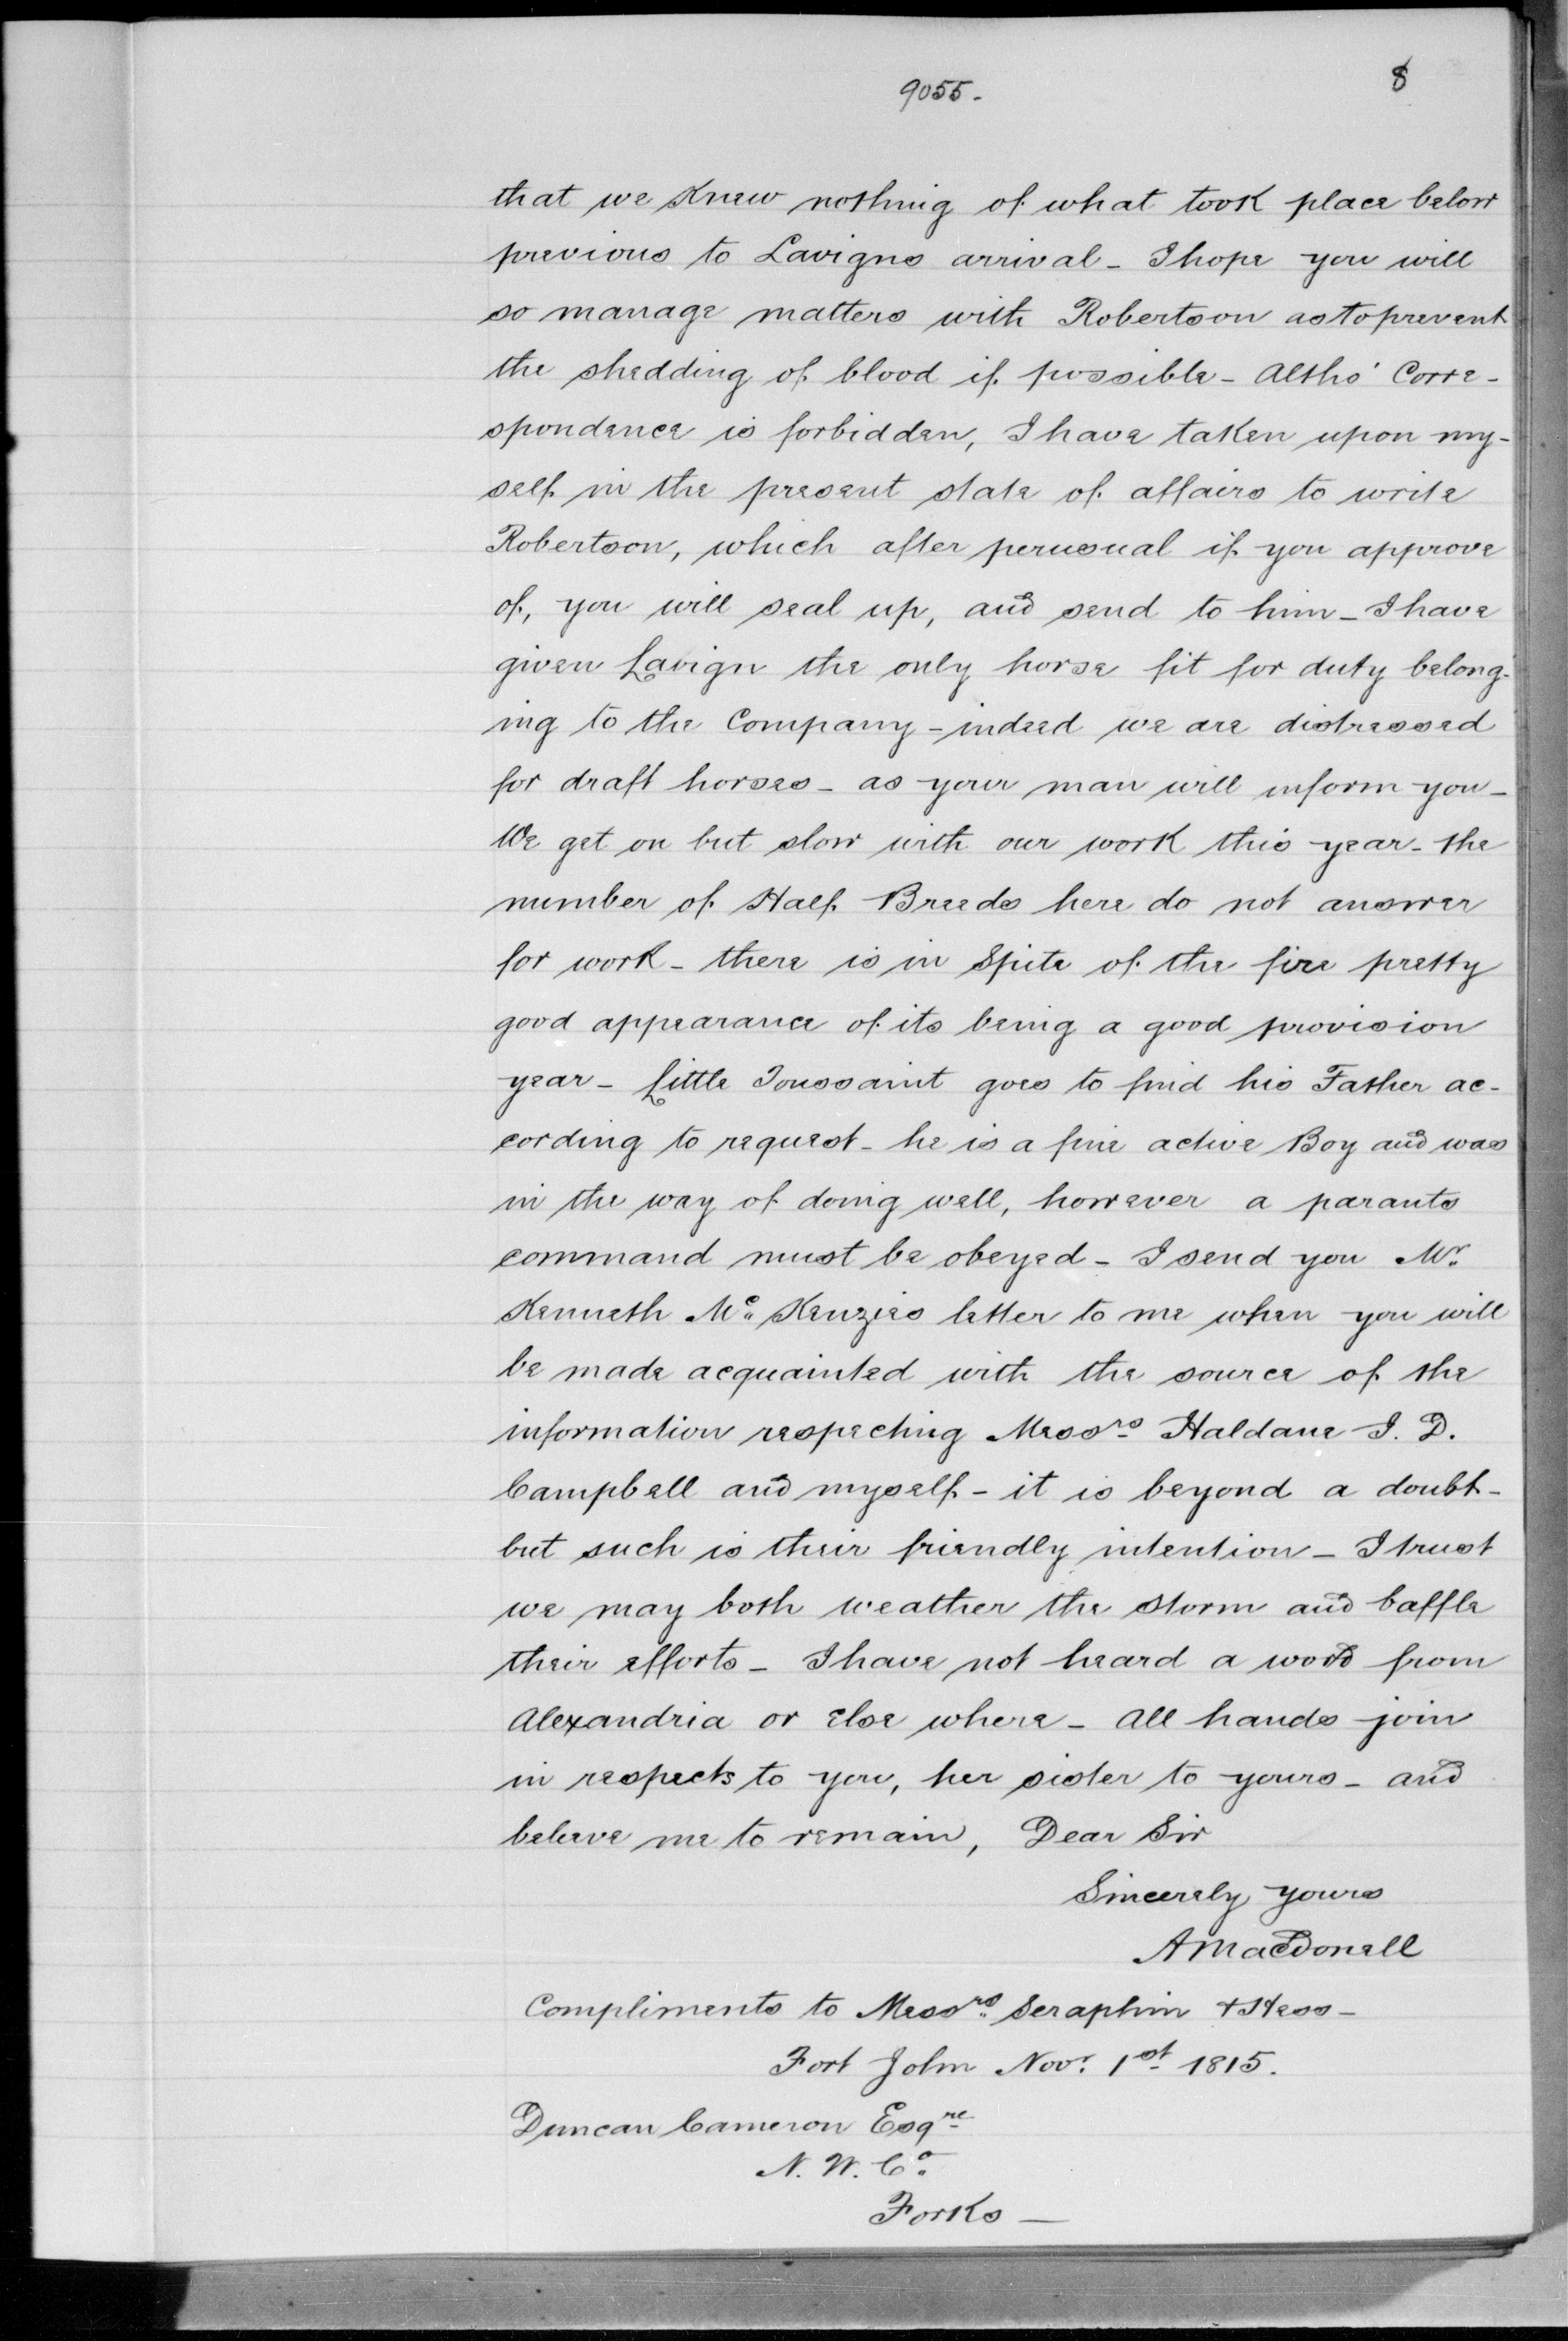 9055.
8
that we knew nothing of what took place below
previous to Lavigns arrival - I hope you will
so manage matters with Robertson as to prevent
the shedding of blood if possible - Altho' Corre-
spondence is forbidden, I have taken upon my-
self in the present state of affairs to write
Robertson, which after perusual if you approve
of, you will seal up, and send to him - I have
given Lavign the only horse fit for duty belong-
ing to the Company - indeed we are distressed
for draft horses - as your man will inform you -
We get on but slow with our work this year - the
number of Half Breeds here do not answer
for work - there is in Spite of the fire pretty
good appearance of its being a good provision
year - Little Toussaint goes to find his Father ac-
cording to request - he is a fine active Boy and was
in the way of doing well, however a parents
command must be obeyed - I send you Mr.
Kenneth Mc. Kenzies letter to me when you will
be made acquainted with the source of the
information respecting Messrs Haldane J. D.
Campbell and myself - it is beyond a doubt -
but such is their friendly intention - I trust
we may both weather the storm and baffle
their efforts - I have not heard a word from
Alexandria or else where - All hands join
in respects to you, her sister to yours - and
beleave me to remain, Dear Sir
Sincerely yours
A MacDonell
Compliments to Messrs. Seraphin + Hess -
Fort John Novr. 1st 1815.
Duncan Cameron Esqre
N. W. Co.
Forks -